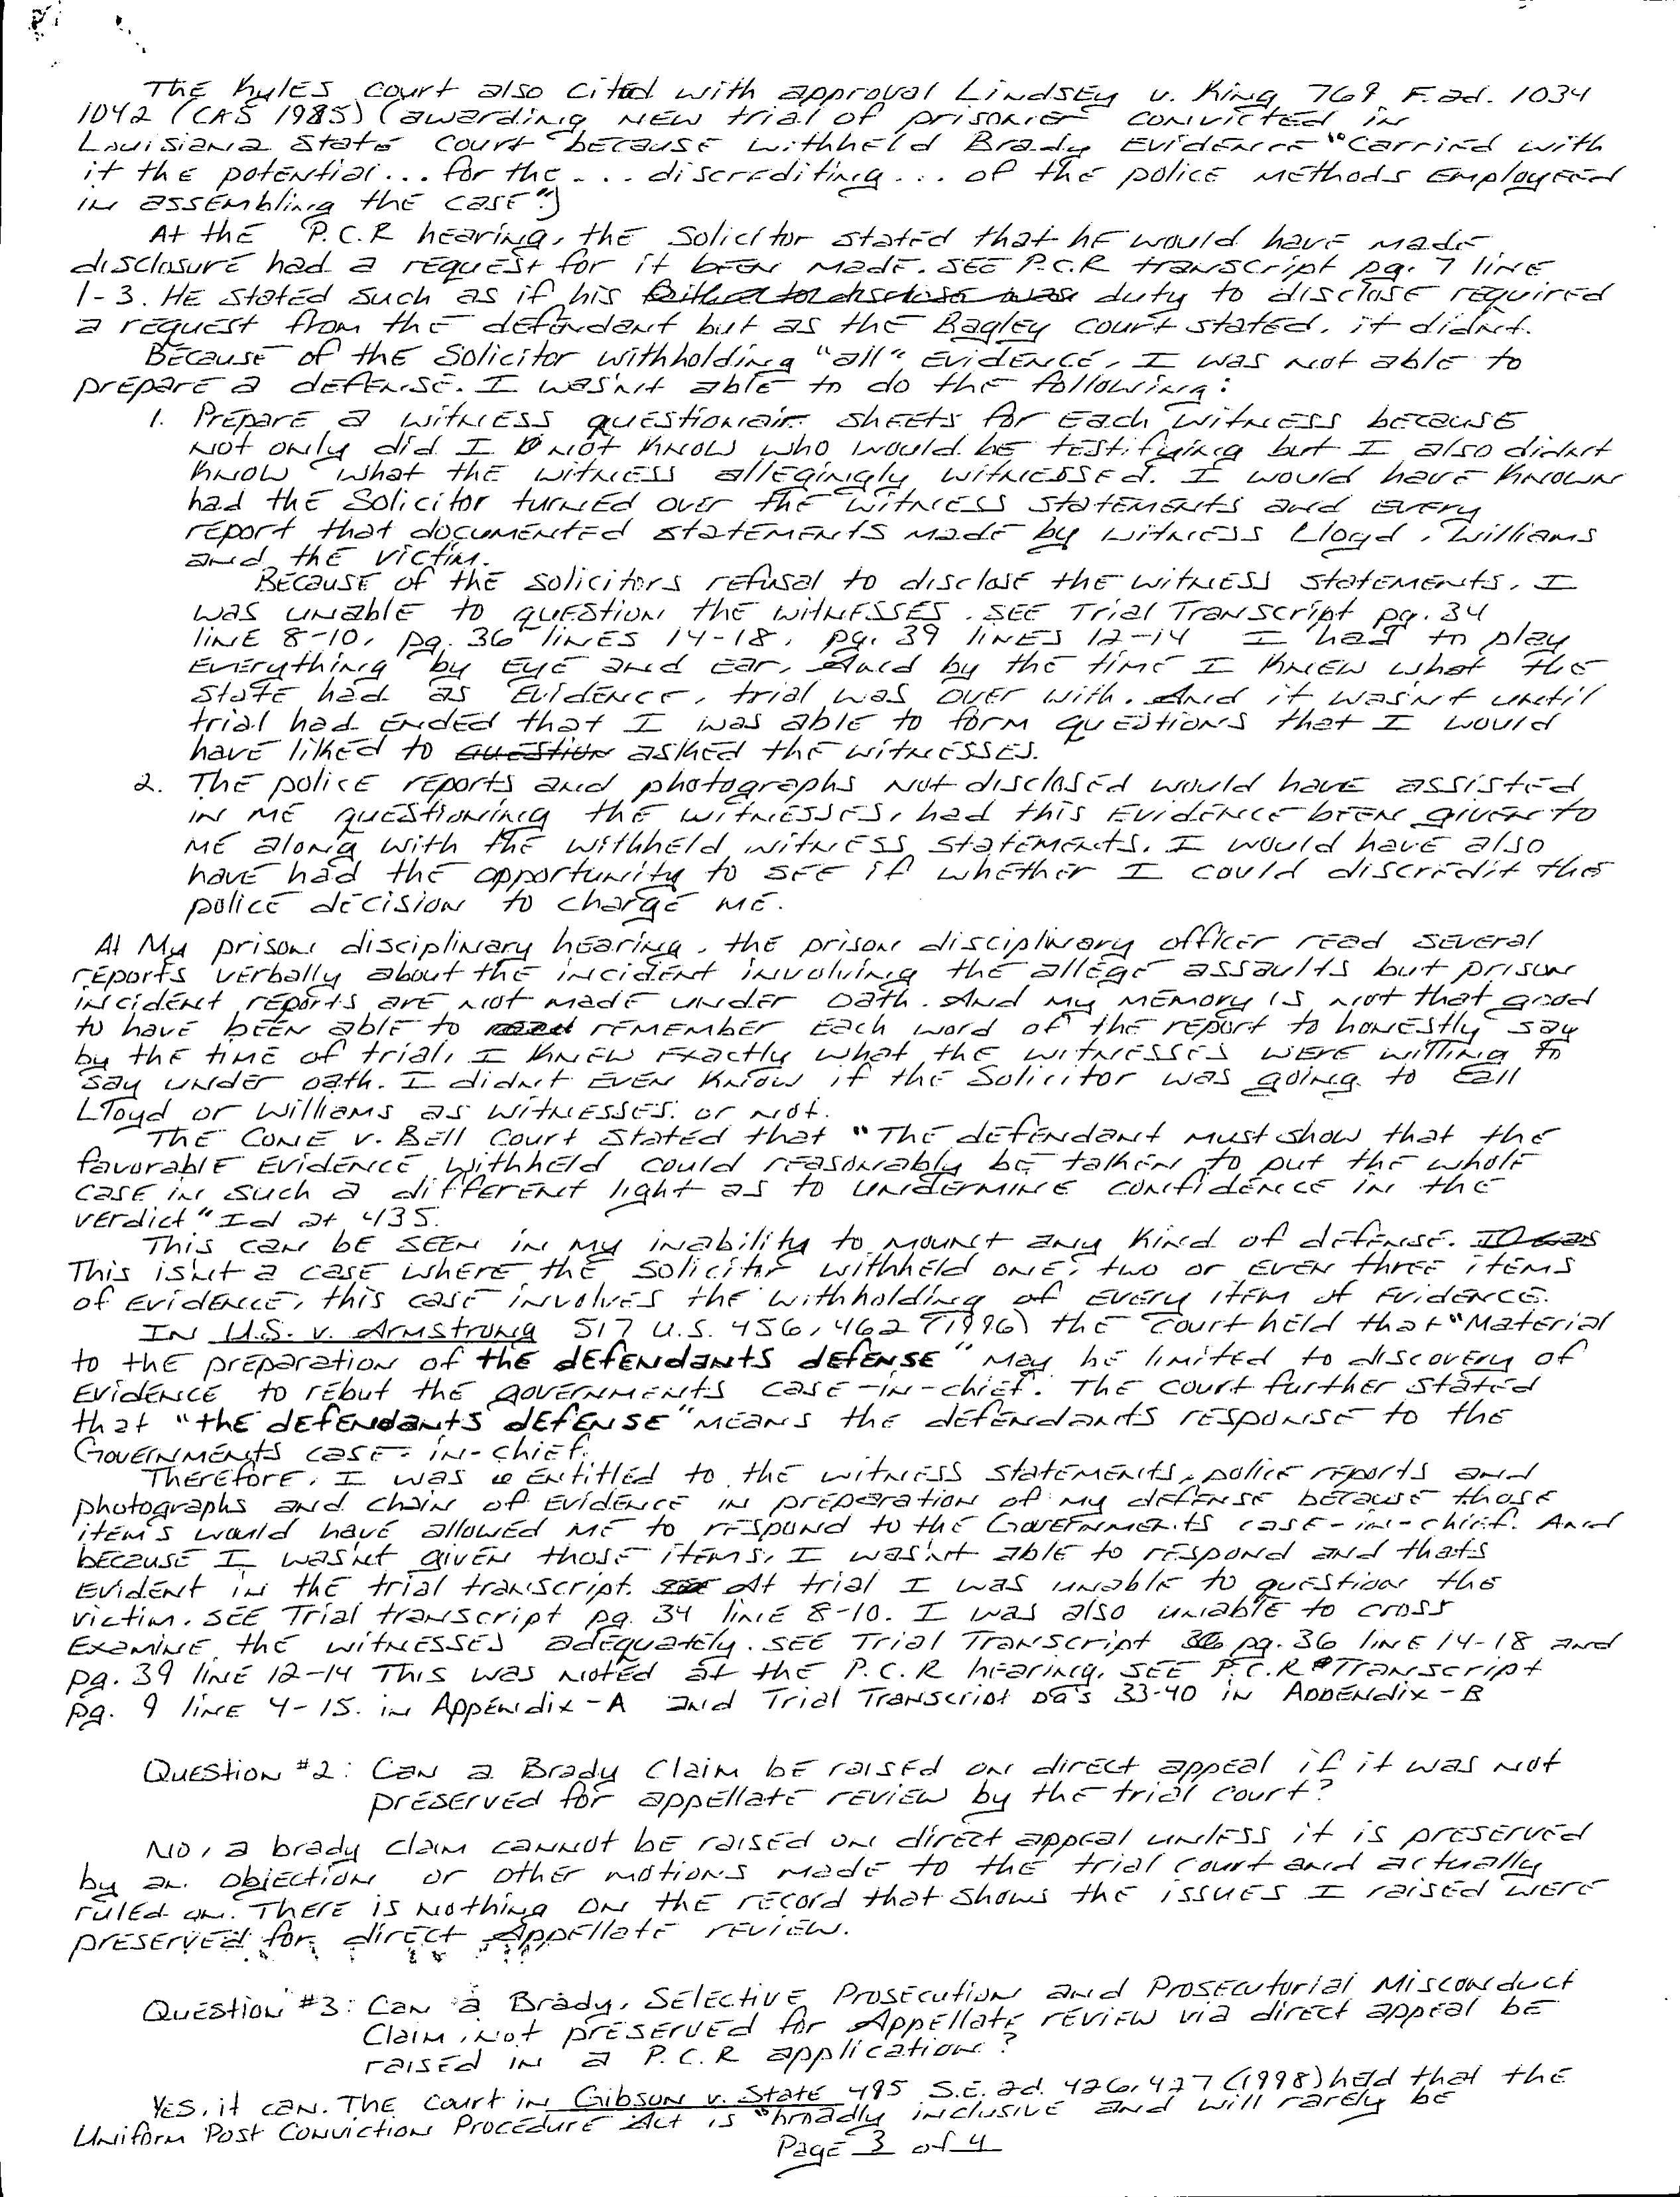 The Kyles court also cited with approval Lindsey v. King, 769 F.2d. 1034
1042 (CA5 1985) (awarding new trial of prisoner convicted in
Louisiana State court because withheld Brady Evidence "carried with
it the potential... for the ... discrediting... of the police methods employeed
in assembling the case")
At the P.C.R hearing, the Solicitor stated that he would have made
disclosure had a request for it been made. See P.C.R transcript pg. 7 line
1-3. He stated such as if his duty to disclose required
a request from the defendant but as the Bagley court stated, it didn't.
Because of the Solicitor withholding "all" evidence, I was not able to
prepare a defense. I wasn't able to do the following:
1. Prepare a witness questionair sheets for each witness because
not only did I not know who would be testifying but I also didn't
know what the witness allegingly witnessed. I would have known
had the Solicitor turned over the witness statements and every
report that documented statements made by witness Lloyd, Williams
and the victim.
Because of the solicitors refusal to disclose the witness statements, I
was unable to question the witnesses. See Trial Transcript pg. 34
line 8-10, pg. 36 lines 14-18, pg. 39 lines 12-14 I had to play
everything by eye and ear. And by the time I knew what the
state had as evidence, trial was over with. And it wasn't until
trial had ended that I was able to form questions that I would
have liked to question asked the witnesses.
2. The police reports and photographs not disclosed would have assisted
in me questioning the witnesses, had this evidence been given to
me along with the withheld witness statements. I would have also
have had the opportunity to see if whether I could discredit the
police decision to charge me.
At My prison disciplinary hearing, the prison disciplinary officer read several
reports verbally about the incident involving the allege assaults but prison
incident reports are not made under oath. And my memory is not that good
to have been able to remember each word of the report to honestly say
by the time of trial, I knew exactly what the witnesses were willing to
say under oath. I didn't even know if the Solicitor was going to call
Lloyd or Williams as witnesses or not.
The Cone v. Bell Court stated that "The defendant must show that the
favorable evidence withheld could reasonably be talken to put the whole
case in such a different light as to undermine confidence in the
verdict" Id at 435.
This can be seen in my inability to mount any kind of defense.
This isn't a case where the Solicitor withheld one, two or even three items
of evidence, this case involves the withholding of every item of evidence.
In U.S. v. Armstrong 517 U.S. 456, 462 (1996) the court held that "Material
to the preparation of the defendants defense" may be limited to discovery of
evidence to rebut the governments case-in-chief. The court further stated
that "the defendants defense" means the defendants response to the
Governments case-in-chief.
Therefore, I was entitled to the witness statements, police reports and
photographs and chain of evidence in preparation of my defense because those
item's would have allowed me to respond to the Governments case-in-chief. And
because I wasn't given those items, I wasn't able to respond and thats
evident in the trial transcript. At trial I was unable to question the
victim. See Trial transcript pg. 34 line 8-10. I was also unable to cross
examine the witnesses adequately. See Trial Transcript pg. 36 line 14-18 and
pg. 39 line 12-14 This was noted at the P.C.R hearing. See P.C.R Transcript
pg. 9 line 4-15. in Appendix-A and Trial Transcript pg's 33-40 in Appendix-B
Question #2: Can a Brady Claim be raised on direct appeal if it was not
preserved for appellate review by the trial court?
No, a brady claim cannot be raised on direct appeal unless it is preserved
by an objection or other motions made to the trial court and actually
ruled on. There is nothing on the record that shows the issues I raised were
preserved for direct Appellate review.
Question #3: Can a Brady, Selective Prosecution and Prosecutorial Misconduct
Claim, not preserved for Appellate review via direct appeal be
raised in a P.C.R application?
Yes, it can. The court in Gibson v. State 495 S.E. 2d. 426, 427 (1998) held that the
Uniform Post Conviction Procedure Act is "broadly inclusive and will rarely be
Page 3 of 4